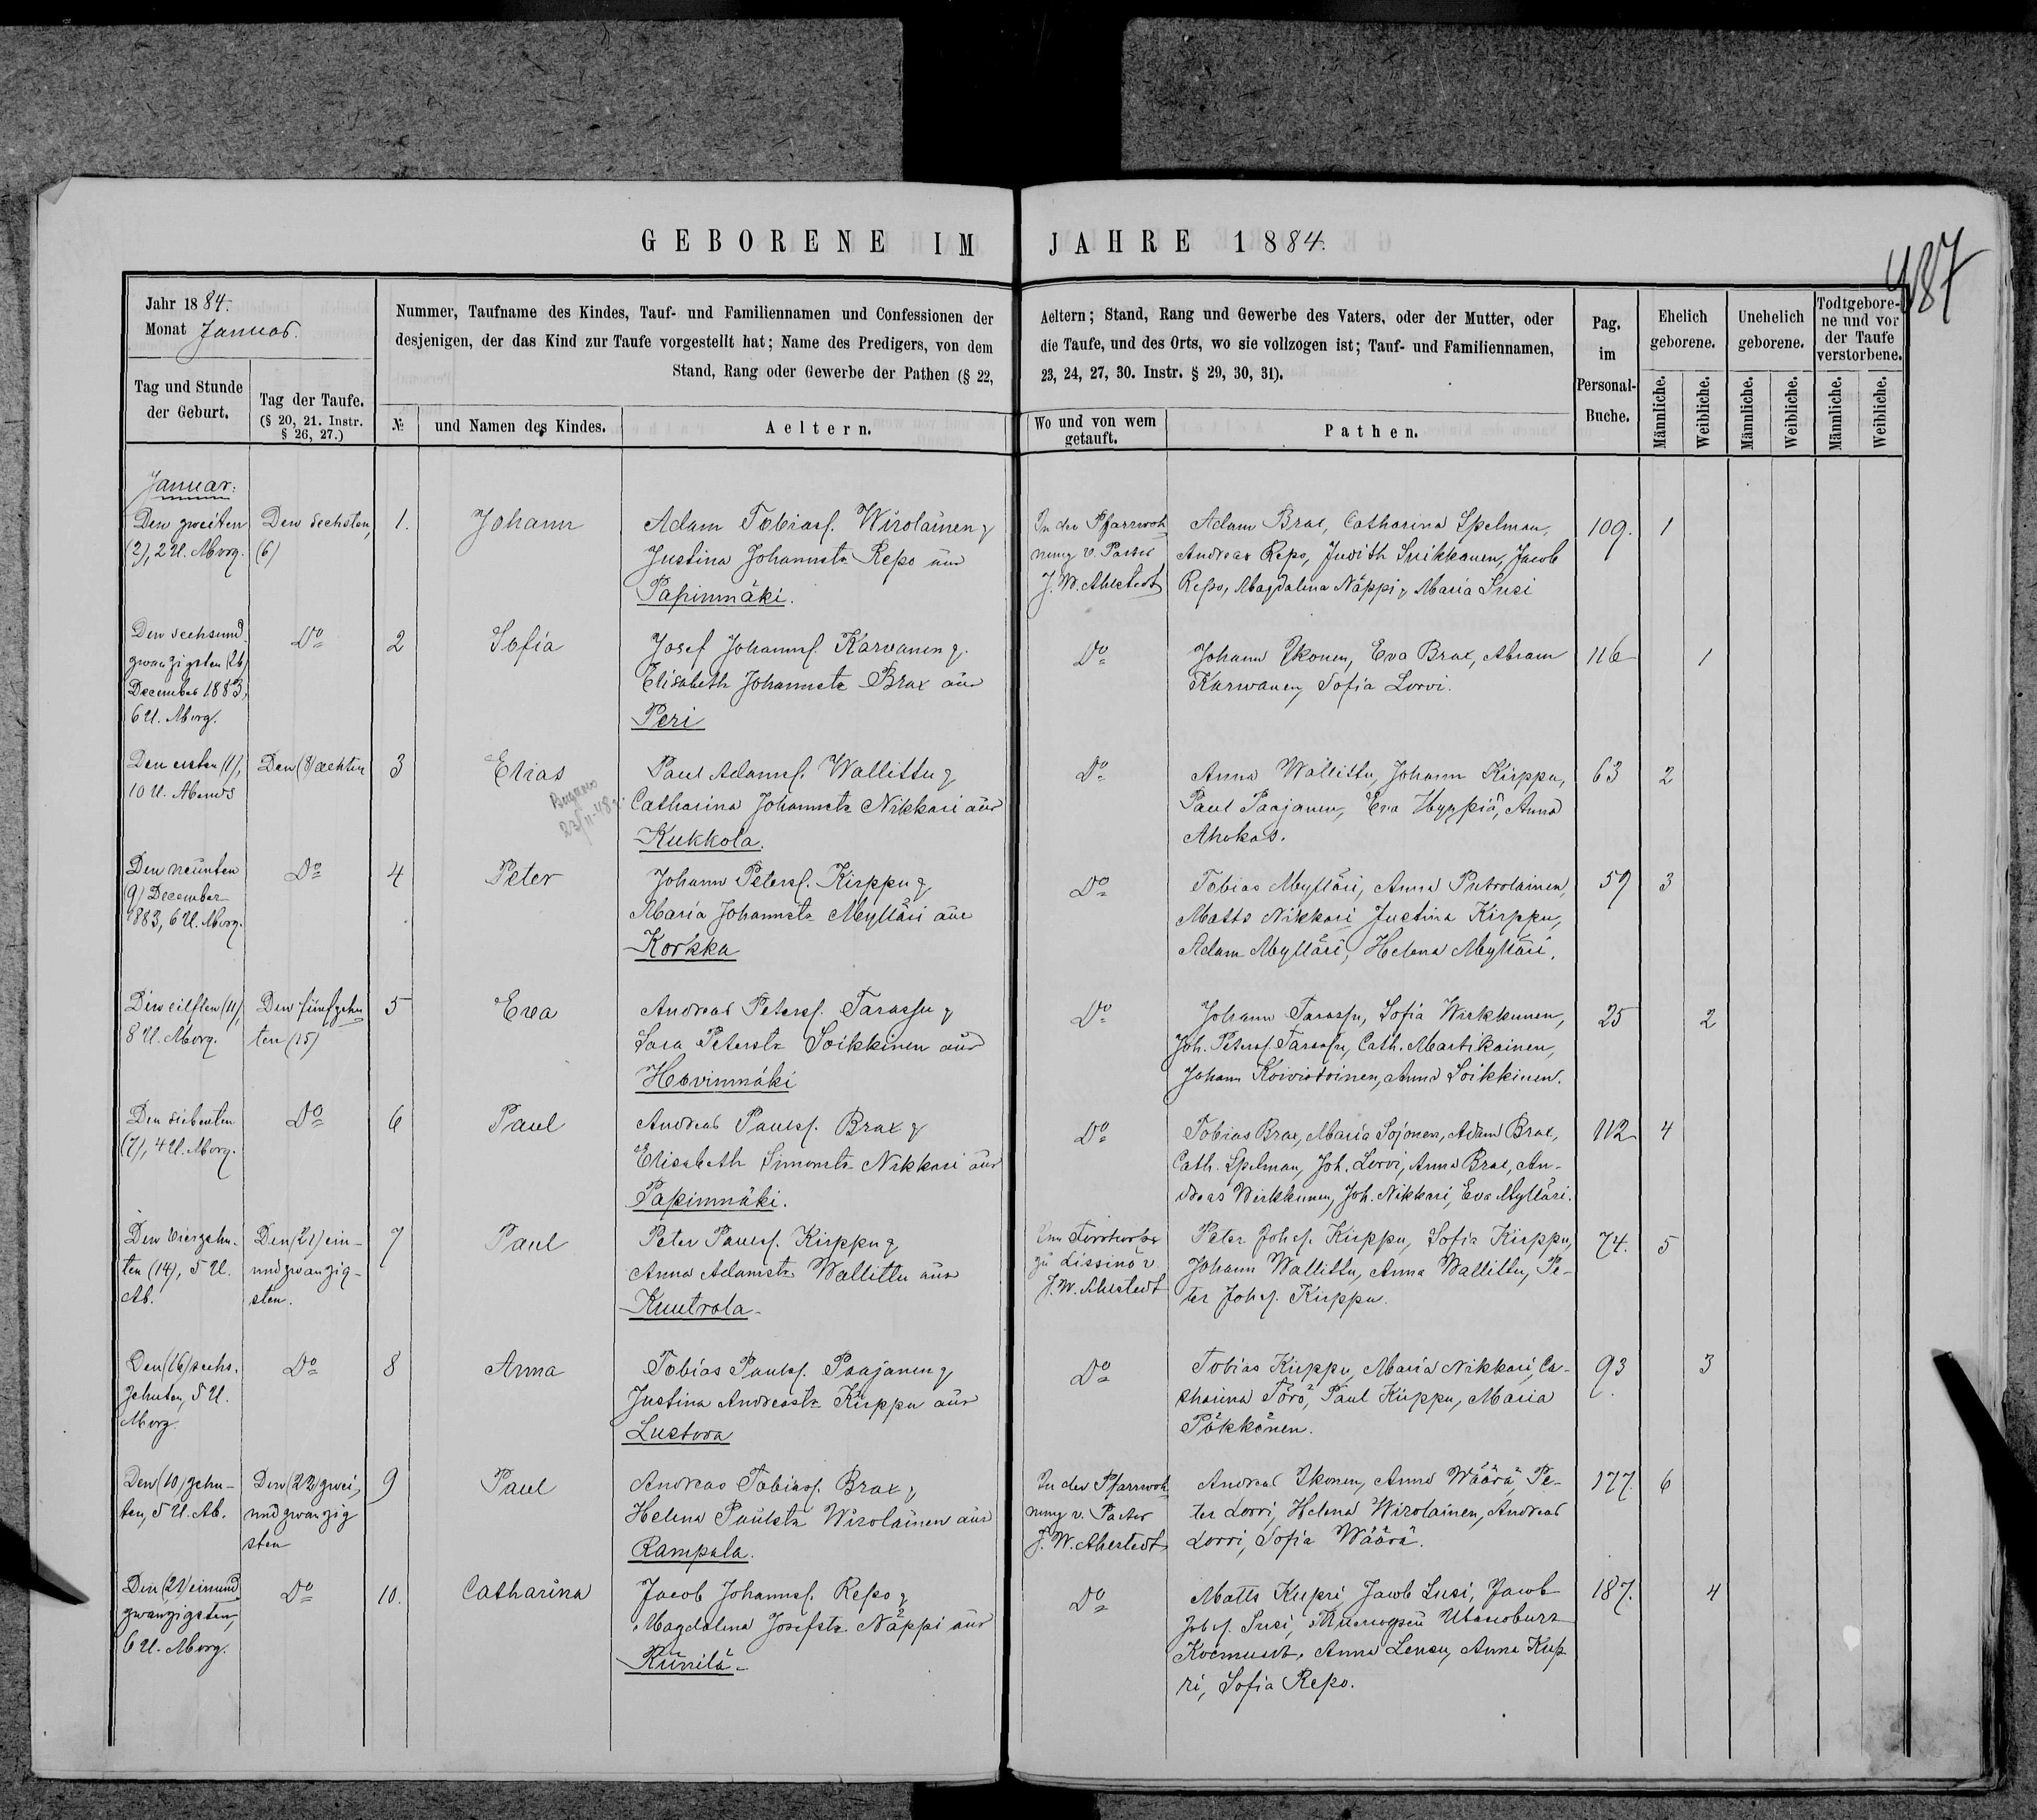 GEBORENE IM JAHRE 1884.
487
Jahr 1884.
Monat Januar.
Tag und Stunde
der Geburt.
Tag der Taufe.
(§ 20, 21. Instr.
§ 26, 27.)
Nummer, Taufname des Kindes, Tauf- und Familiennamen und Confessionen der
desjenigen, der das Kind zur Taufe vorgestellt hat; Name des Predigers, von dem
Stand, Rang oder Gewerbe der Pathen (§ 22,
№
und Namen des Kindes.
Aeltern.
Aeltern; Stand, Rang und Gewerbe des Vaters, oder der Mutter, oder
die Taufe, und des Orts, wo sie vollzogen ist; Tauf- und Familiennamen,
23, 24, 27, 30. Instr. § 29, 30, 31).
Wo und von wem
getauft.
Pathen.
Pag.
im
Personal-
Buche.
Ehelich
geborene.
Unehelich
geborene.
Todtgebore-
ne und vor
der Taufe
verstorbene.
Männliche.
Weibliche.
Männliche.
Weibliche.
Männliche.
Weibliche.
Januar:
Den zweiten
(2), 2 U. Morg.
Den sechsten,
(6)
1.
Johann
Adam Tobiass. Wirolainen &
Justina Johannstr. Repo aus
Papinmäki.
In der Pfarrwoh
nung v. Pastor
J. W. Ahlstedt
Adam Brax, Catharina Spelman,
Andreas Repo, Judith Suikkanen, Jacob
Repo, Magdalena Näppi & Maria Susi
109.
1
Den sechsund
zwanzigsten (26)
December 1883,
6 U. Morg.
Do
2
Sofia
Josef Johanns. Karvanen &
Elisabeth Johannstr. Brax aus
Peri
Do
Johann Ikonen, Eva Brax, Abram
Karwanen, Sofia Lorvi.
116
1
Den ersten (1),
10 U. Abends
Den (8) achten
3
Elias
23/II-48 г.
Paul Adams. Wallittu &
Catharina Johannstr. Nikkari aus
Kukkola.
Do
Anna Wallittu, Johann Kirppu,
Paul Paajanen, Eva Hyppiä, Anna
Ahokas.
63
2
Den neunten
(9) December
1883, 6 U. Morg.
Do
4
Peter
Johann Peters. Kirppu &
Maria Johannstr. Mylläri aus
Korkka
Do
Tobias Mylläri, Anna Putrolainen,
Matts Nikkari Justina Kirppu,
Adam Mylläri, Helena Mylläri.
59
3
Den eilften (11),
8 U. Morg.
Den fünfzehn
ten (15)
5
Eva
Andreas Peters. Tarassu &
Sara Peterstr. Soikkinen aus
Hovinmäki
Do
Johann Tarassu, Sofia Wirkkunen,
Joh. Peters. Tarassu, Cath. Martikainen,
Johann Koivistoinen, Anna Soikkinen.
25
2
Den siebenten
(7), 4 U. Morg.
Do
6
Paul
Andreas Pauls. Brax &
Elisabeth Simonstr. Nikkari aus
Papinmäki.
Do
Tobias Brax, Maria Sojonen, Adam Brax,
Cath. Spelman, Joh. Lorvi, Anna Brax, An-
dreas Wirkkunen, Joh. Nikkari, Eva Mylläri.
112
4
Den vierzehn-
ten (14), 5 U.
Ab.
Den (21) ein-
undzwanzig-
sten.
7
Paul
Peter Pauls. Kirppu &
Anna Adamstr. Wallittu aus
Kuutrola.
zu Lissino v.
J. W. Ahlstedt
Peter Johs. Kirppu, Sofia Kirppu,
Johann Wallittu, Anna Wallittu, Pe-
ter Johs. Kirppu.
74.
5
Den (16) sechs-
zehnten, 5 U.
Morg.
Do
8
Anna
Tobias Pauls. Paajanen &
Justina Andreastr. Kirppu aus
Lustova
Do
Tobias Kirppu, Maria Nikkari, Ca-
tharina Törö, Paul Kirppu, Maria
Pökkönen.
93
3
Den (10) zehn-
ten, 5 U. Ab.
Den (22) zwei,
undzwanzig
sten
9
Paul
Andreas Tobiass. Brax &
Helena Paulstr. Wirolainen aus
Rampala.
In der Pfarrwoh
nung v. Pastor
J. W. Ahlstedt
Andreas Ikonen, Anna Wäärä, Pe-
ter Lorvi, Helena Wirolainen, Andreas
Lorvi, Sofia Wäärä.
177.
6
Den (21) einund
zwanzigsten,
6 U. Morg.
Do
10.
Catharina
Jacob Johanns. Repo &
Magdalena Josefstr. Näppi aus
Kurrila.
Do
Matts Kupri, Jacob Susi, Jacob
Johs. Susi, Тимофей Ивановичъ
Anna Lensu, Anna Kup
ri, Sofia Repo.
187.
4